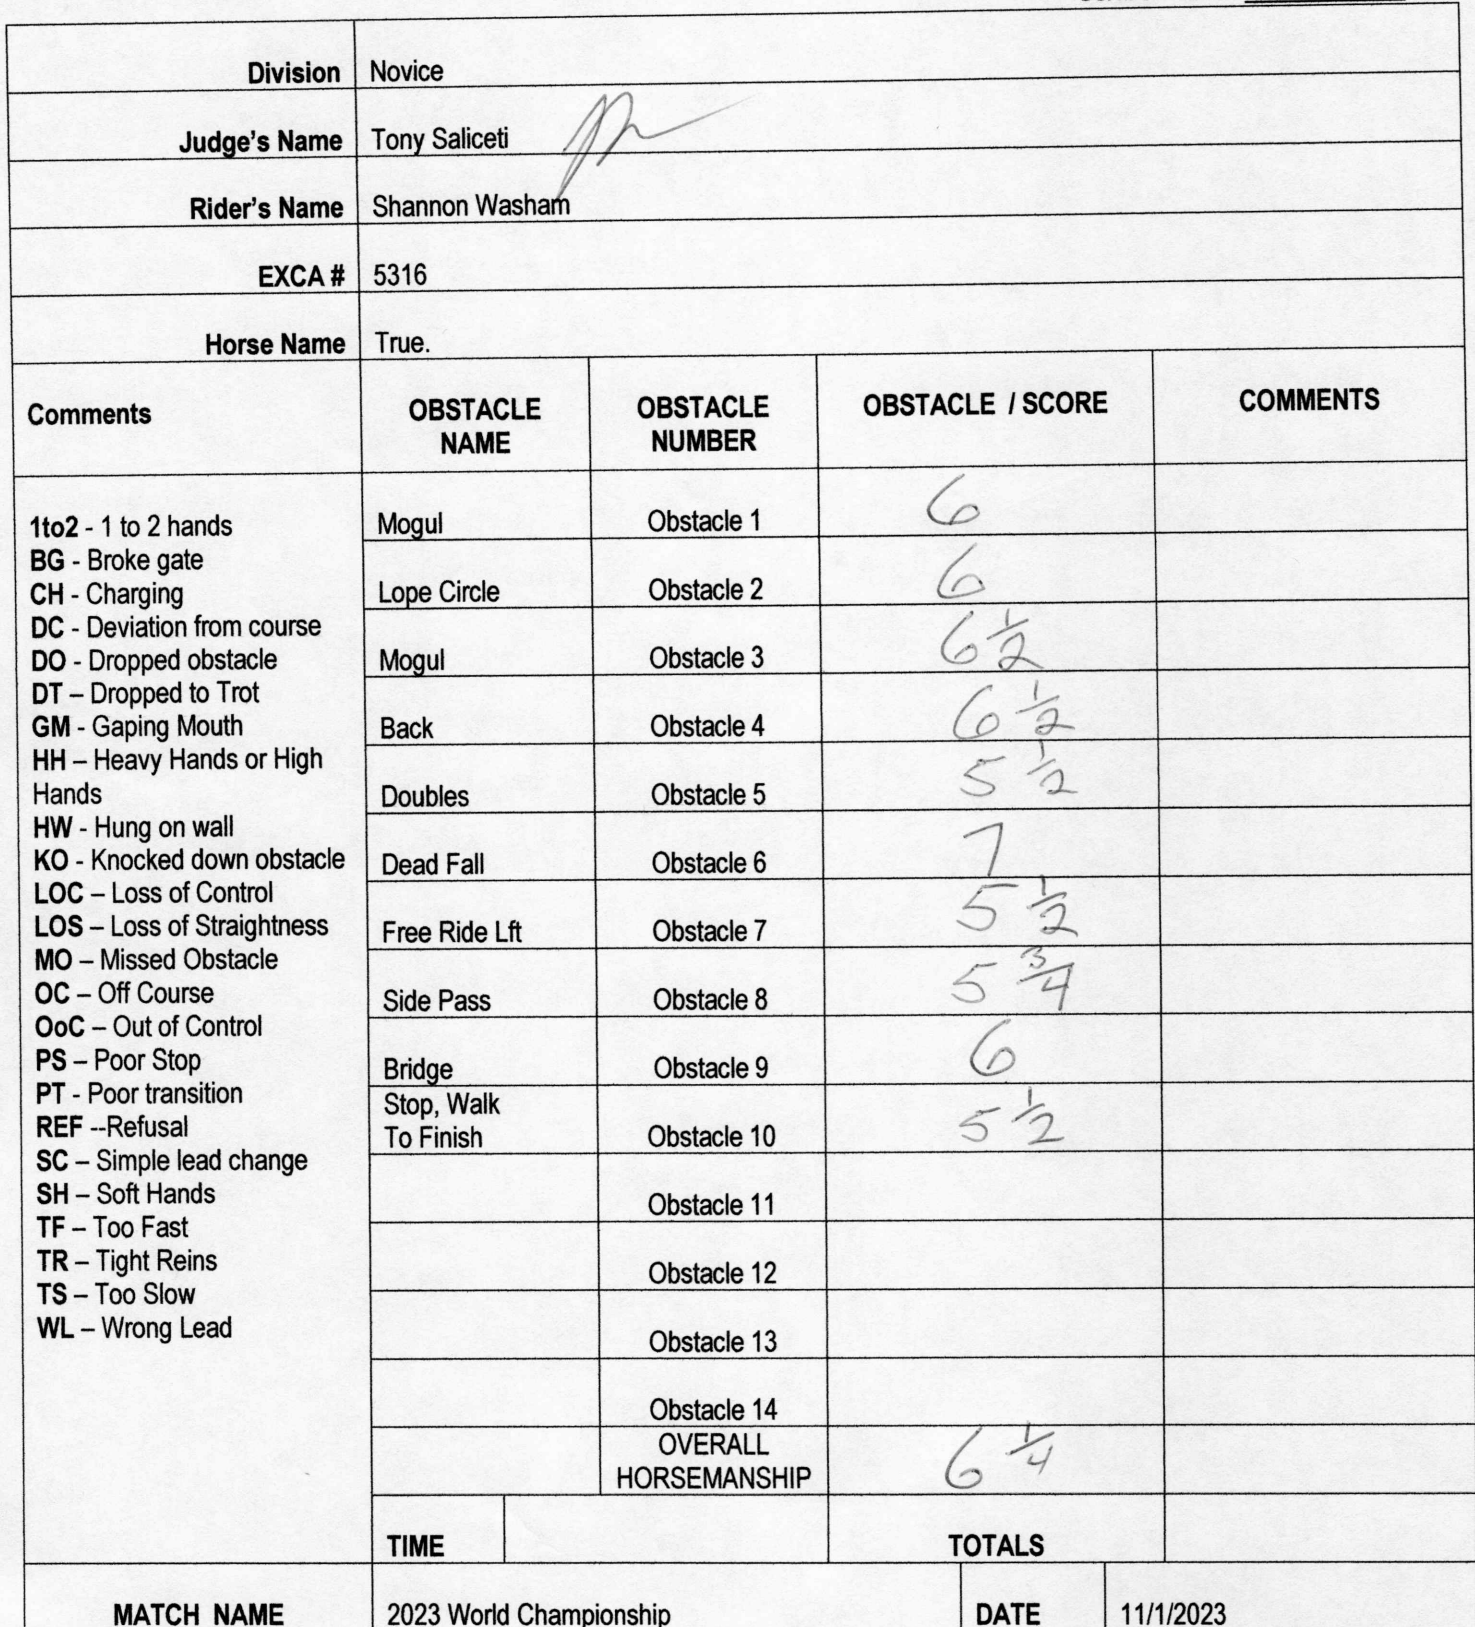 Division Novice
Judge's Name Tony Saliceti
Rider's Name Shannon Washam
EXCA # 5316
Horse Name True.
Comments OBSTACLE NAME OBSTACLE NUMBER OBSTACLE / SCORE COMMENTS
1to2 - 1 to 2 hands
BG - Broke gate
CH - Charging
DC - Deviation from course
DO - Dropped obstacle
DT – Dropped to Trot
GM - Gaping Mouth
HH – Heavy Hands or High
Hands
HW - Hung on wall
KO - Knocked down obstacle
LOC – Loss of Control
LOS – Loss of Straightness
MO – Missed Obstacle
OC – Off Course
OoC – Out of Control
PS – Poor Stop
PT - Poor transition
REF --Refusal
SC – Simple lead change
SH – Soft Hands
TF – Too Fast
TR – Tight Reins
TS – Too Slow
WL – Wrong Lead
Mogul Obstacle 1 6
Lope Circle Obstacle 2 6
Mogul Obstacle 3 6 1/2
Back Obstacle 4 6 1/2
Doubles Obstacle 5 5 1/2
Dead Fall Obstacle 6 7
Free Ride Lft Obstacle 7 5 1/2
Side Pass Obstacle 8 5 3/4
Bridge Obstacle 9 6
Stop, Walk
To Finish Obstacle 10 5 1/2
Obstacle 11
Obstacle 12
Obstacle 13
Obstacle 14
OVERALL
HORSEMANSHIP 6 1/4
TIME TOTALS
MATCH NAME 2023 World Championship DATE 11/1/2023